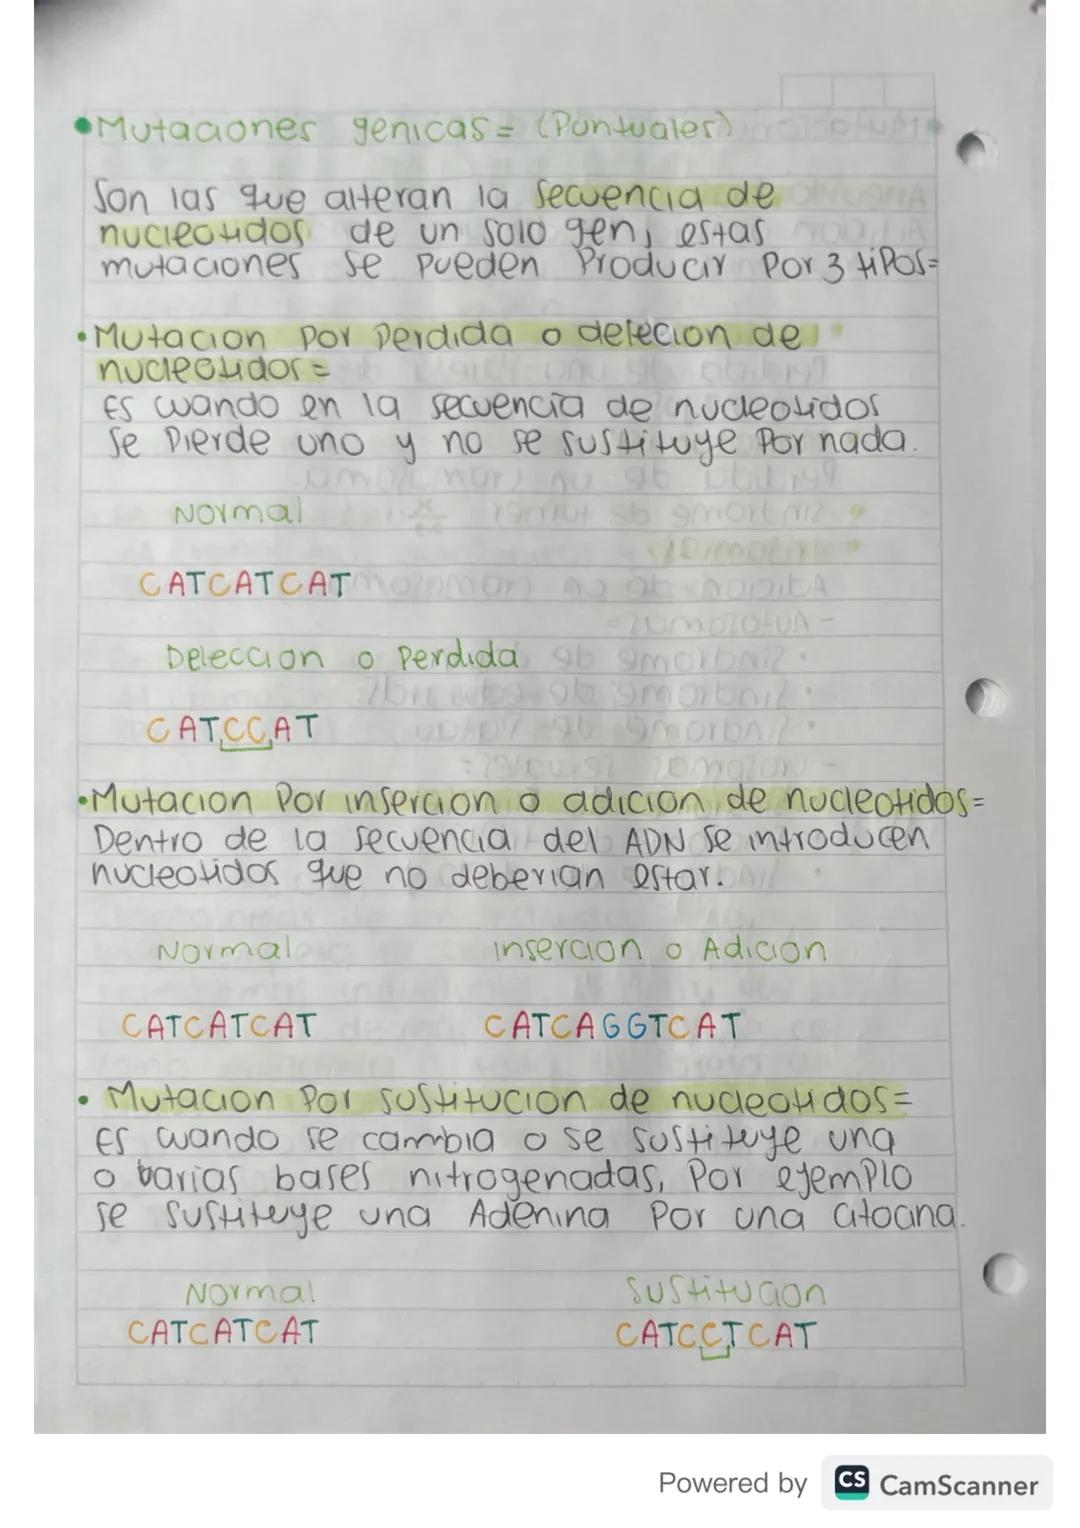 •Mutaciones genicas= (Puntuales)
Son las que alteran la secuencia de
nucleotidos de un solo gen, estas
mutaciones se pueden Producir Por 3 tiPos=
•Mutacion Por Perdida o delecion de
nucleotidos=
Es cuando en la secuencia de nucleotidos
se Pierde uno y no se sustituye Por nada.
Normal
CATCATCAT
Deleccion o Perdida
CATCCAT
•Mutacion Por insercion o adicion de nucleotidos=
Dentro de la secuencia del ADN se introducen
nucleotidos que no deberian estar.
Normal insercion o Adicion
CATCATCAT CATCAGGTCAT
• Mutacion Por sustitucion de nucleotidos=
Es cuando se cambia o se sustituye una
o barias bases nitrogenadas, Por ejemPlo
se sustituye una Adenina Por una citocina.
Normal Sustitucion
CATCATCAT CATCCTCAT
Powered by CS CamScanner